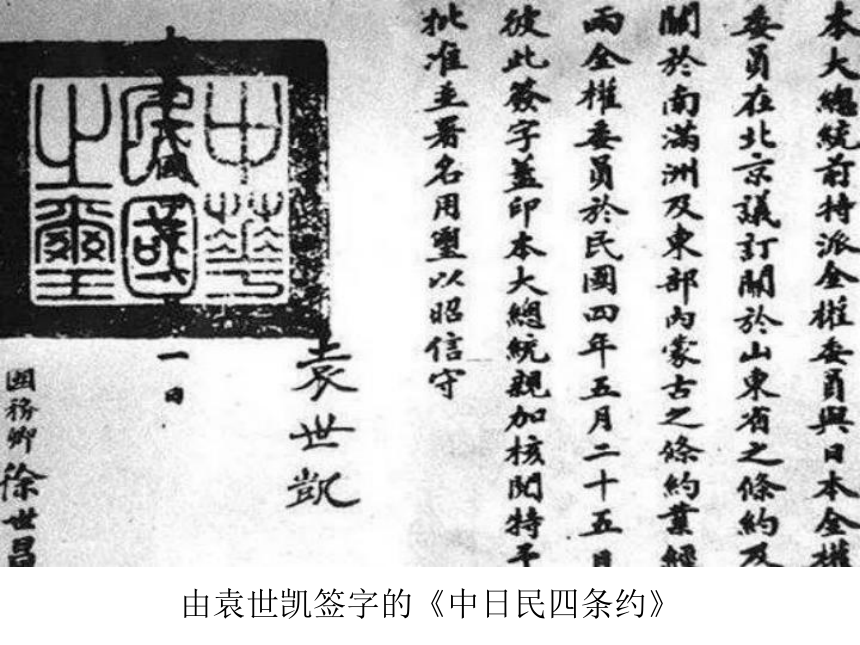 本大總統前特派全權委員與日本全權
委員在北京議訂關於山東省之條約及
關於南滿洲及東部內蒙古之條約業經
兩全權委員於民國四年五月二十五日
彼此簽字蓋印本大總統親加核閱特予
批准並署名用璽以昭信守
袁世凱
中華
民國
之璽
一日
國務卿徐世昌
由袁世凯签字的《中日民四条约》